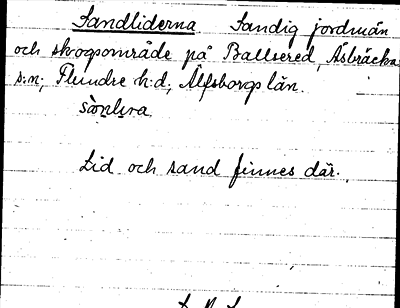 Sandliderna. Sandig jordmån
och skogsområde på Ballsered, Åsbräcka
s:n; Flundre h:d, Älfsborgs län.
Lid och sand finnes där.